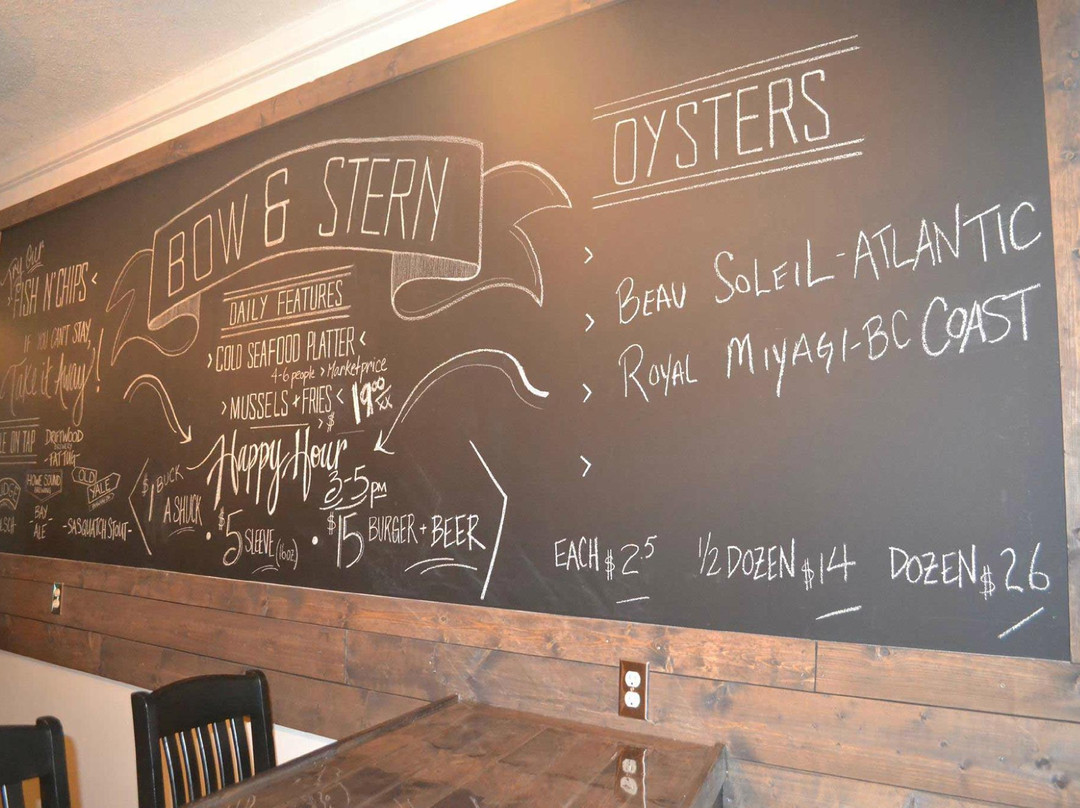 Try Our
> FISH N' CHIPS <
IF YOU CAN'T STAY,
Take it Away!
LE ON TAP
DRIFTWOOD
- FAT TUG -
HOWE SOUND
BAY
- ALE -
OLD
YALE
- SASQUATCH STOUT -
BOW & STERN
DAILY FEATURES
> COLD SEAFOOD PLATTER <
4-6 people > Market price
> MUSSELS + FRIES < 19.00
Happy Hour
3-5pm
$1 BUCK
A SHUCK
• $5 SLEEVE (16oz)
• $15 BURGER + BEER
OYSTERS
> BEAU SOLEIL - ATLANTIC
> ROYAL MIYAGI - BC COAST
>
>
EACH $2.5
1/2 DOZEN $14
DOZEN $26